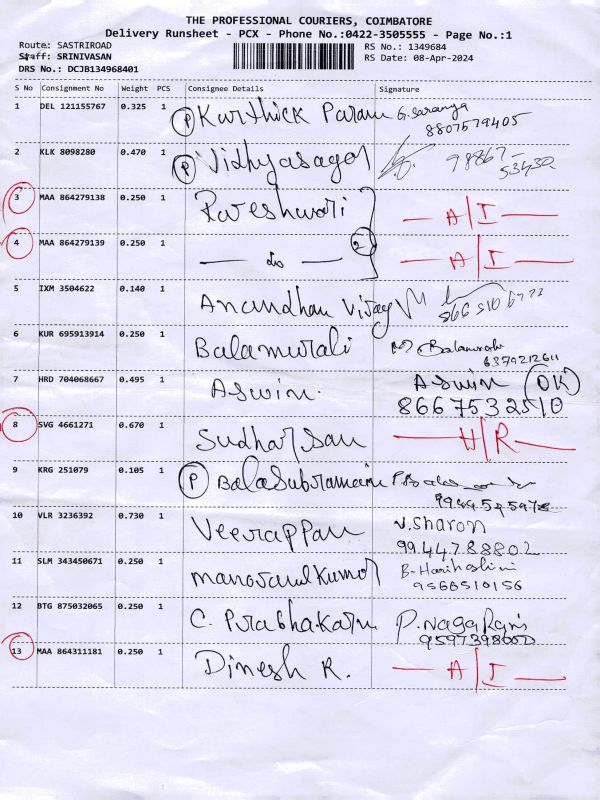 THE PROFESSIONAL COURIERS, COIMBATORE
Delivery Runsheet - PCX - Phone No.:0422-3505555 - Page No.:1
Route: SASTRIROAD RS No.: 1349684
Staff: SRINIVASAN RS Date: 08-Apr-2024
DRS No.: DCJB134968401
S No Consignment No Weight PCS Consignee Details Signature
1 DEL 121155767 0.325 1 P Karthick Param G. Saranya
8807579405
2 KLK 8098280 0.470 1 P Vidhyasagar 98867-
53430
3 MAA 864279138 0.250 1 Pareshwari A/I
4 MAA 864279139 0.250 1 do 2 A/I
5 IXM 3504622 0.140 1 Anandhan Vijay
6 KUR 695913914 0.250 1 Balamurali Balamurali
6379212611
7 HRD 704068667 0.495 1 Aswin. Aswin OK
8667532510
8 SVG 4661271 0.670 1 Sudharsan H/R
9 KRG 251079 0.105 1 P BalaSubramani
10 VLR 3236392 0.730 1 Veerappan V. Sharon
9944788802
11 SLM 343450671 0.250 1 Manoranjkumar B-Harihoshini
9566510156
12 BTG 875032065 0.250 1 C. Prabhakaran P. Nagarani
9597398000
13 MAA 864311181 0.250 1 Dinesh R. A/I